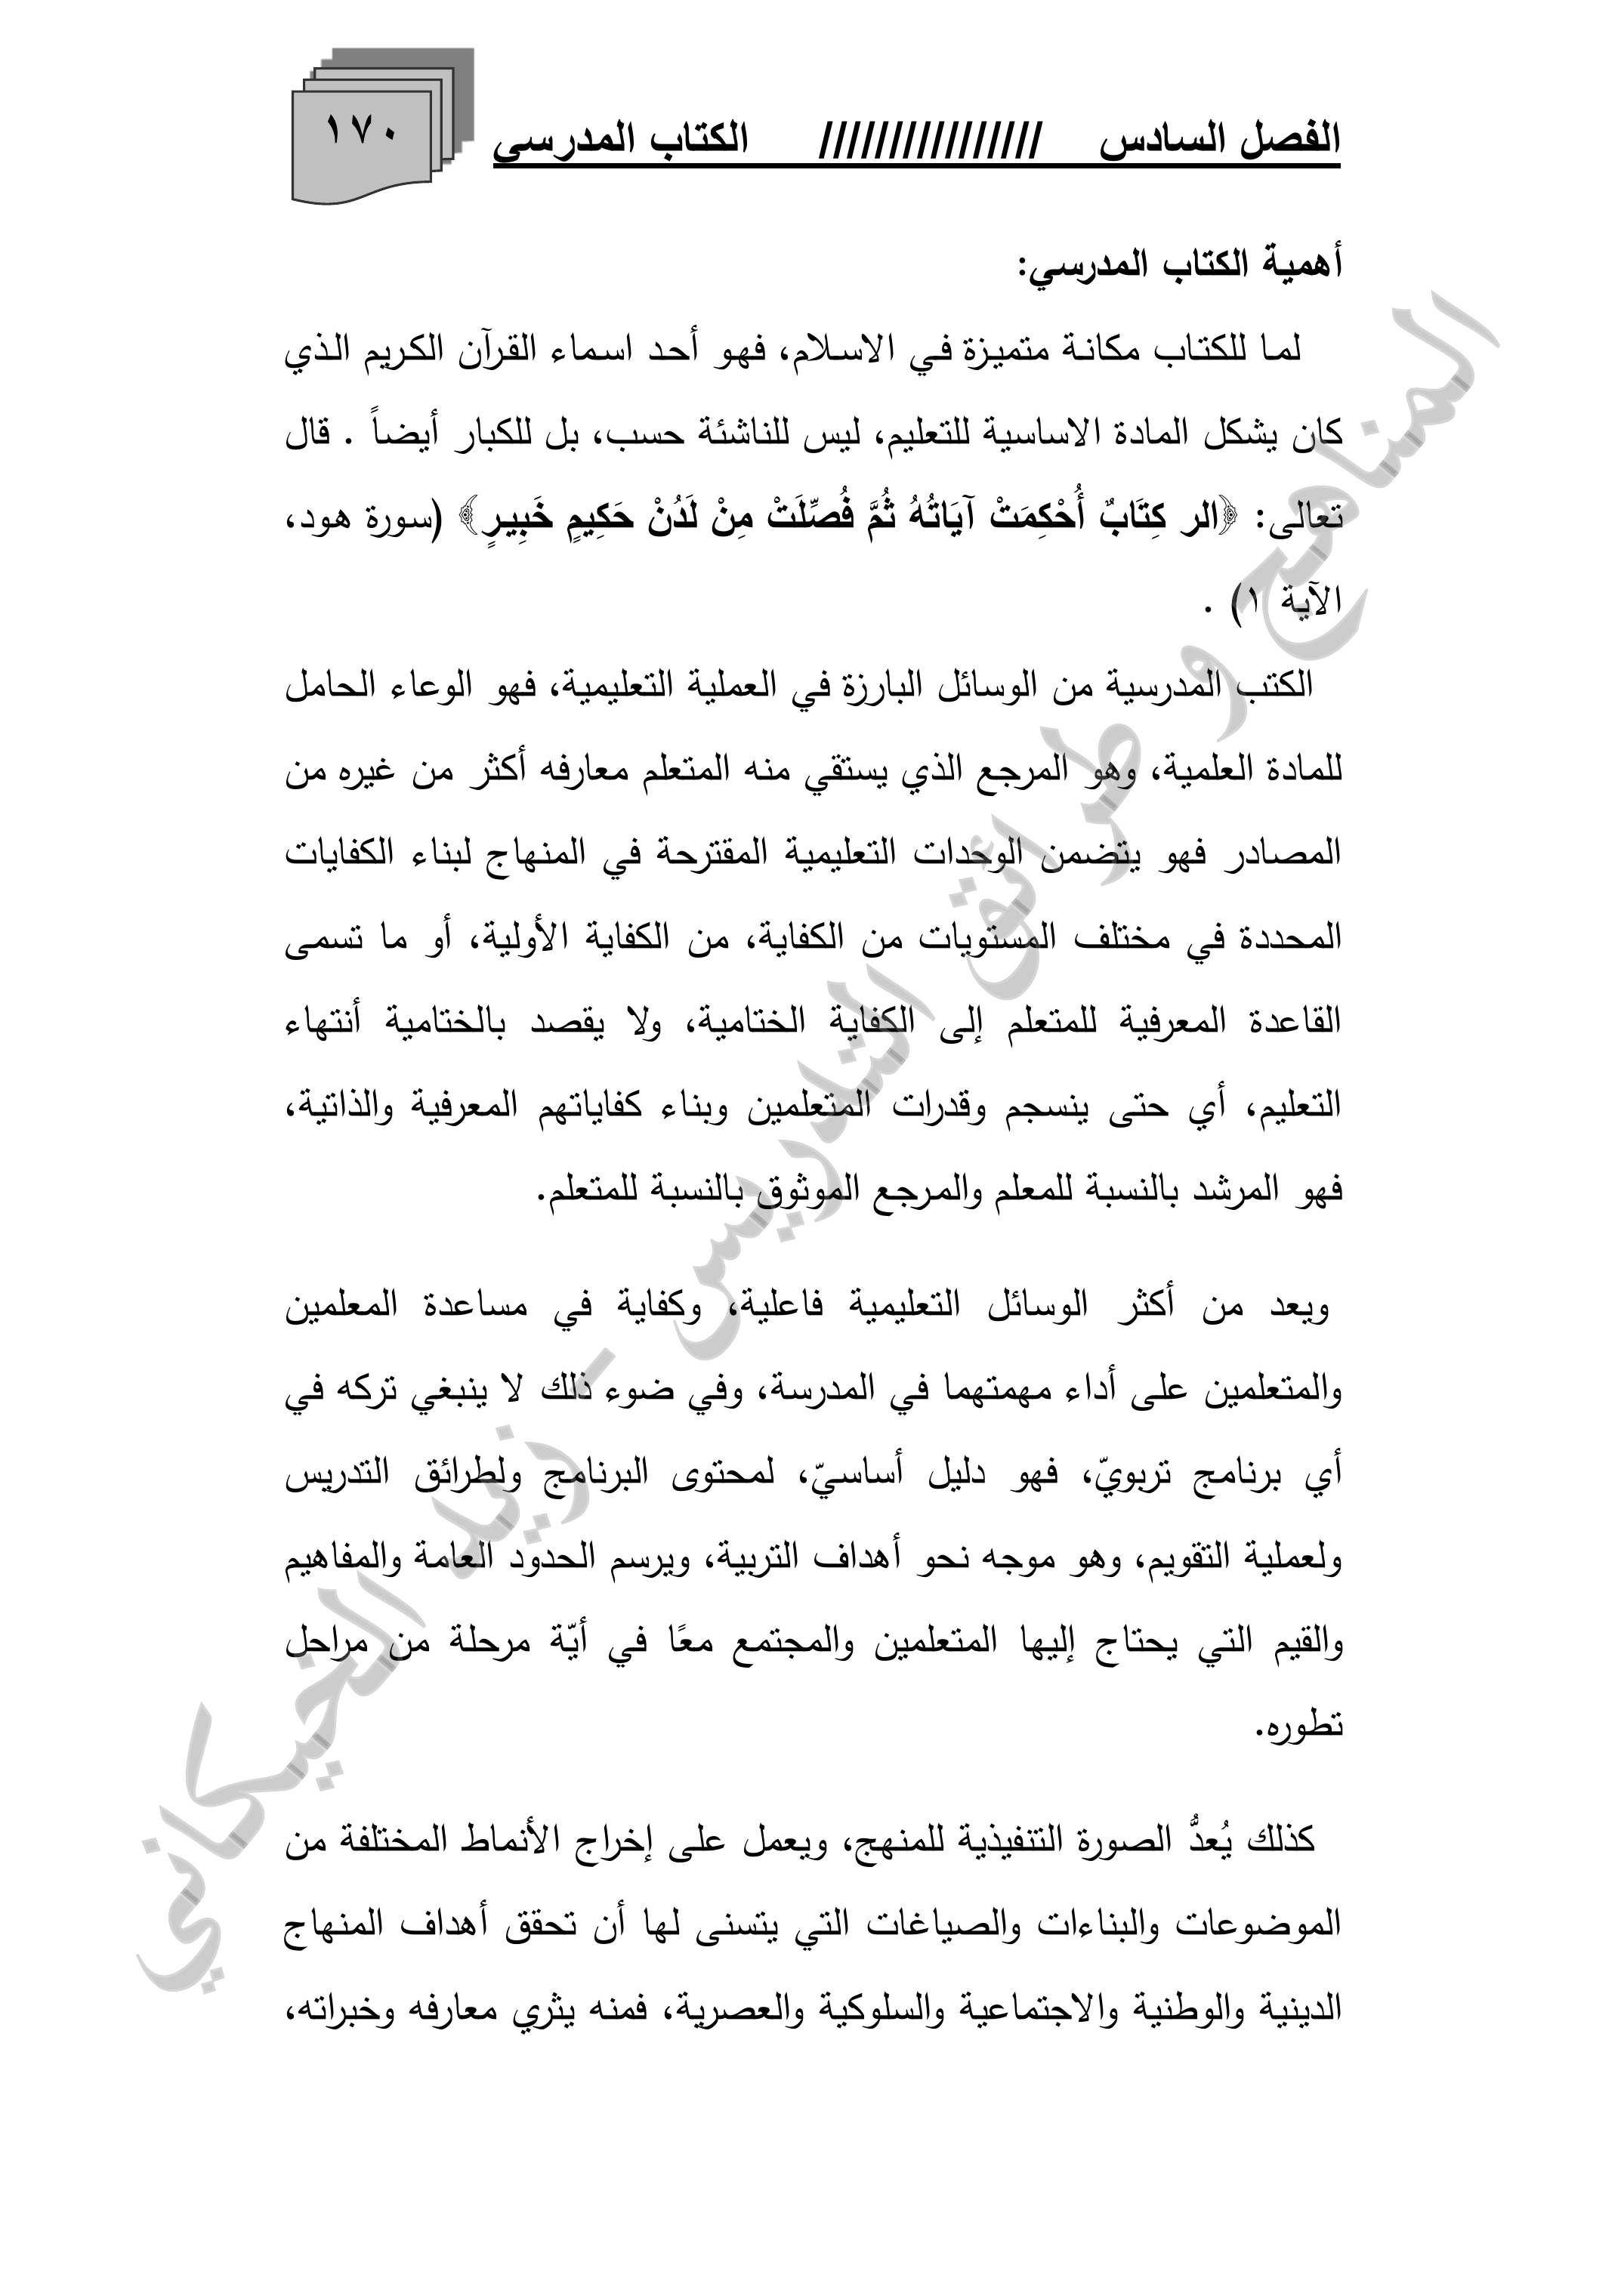 الفصل السادس //////////////// الكتاب المدرسي
١٧٠
أهمية الكتاب المدرسي:
لما للكتاب مكانة متميزة في الاسلام، فهو أحد اسماء القرآن الكريم الذي
كان يشكل المادة الاساسية للتعليم، ليس للناشئة حسب، بل للكبار أيضاً . قال
تعالى: ﴿الر كِتَابٌ أُحْكِمَتْ آيَاتُهُ ثُمَّ فُصِّلَتْ مِنْ لَدُنْ حَكِيمٍ خَبِيرٍ﴾ (سورة هود،
الآية ١) .
الكتب المدرسية من الوسائل البارزة في العملية التعليمية، فهو الوعاء الحامل
للمادة العلمية، وهو المرجع الذي يستقي منه المتعلم معارفه أكثر من غيره من
المصادر فهو يتضمن الوحدات التعليمية المقترحة في المنهاج لبناء الكفايات
المحددة في مختلف المستويات من الكفاية، من الكفاية الأولية، أو ما تسمى
القاعدة المعرفية للمتعلم إلى الكفاية الختامية، ولا يقصد بالختامية أنتهاء
التعليم، أي حتى ينسجم وقدرات المتعلمين وبناء كفاياتهم المعرفية والذاتية،
فهو المرشد بالنسبة للمعلم والمرجع الموثوق بالنسبة للمتعلم.
ويعد من أكثر الوسائل التعليمية فاعلية، وكفاية في مساعدة المعلمين
والمتعلمين على أداء مهمتهما في المدرسة، وفي ضوء ذلك لا ينبغي تركه في
أي برنامج تربويّ، فهو دليل أساسيّ، لمحتوى البرنامج ولطرائق التدريس
ولعملية التقويم، وهو موجه نحو أهداف التربية، ويرسم الحدود العامة والمفاهيم
والقيم التي يحتاج إليها المتعلمين والمجتمع معًا في أيّة مرحلة من مراحل
تطوره.
كذلك يُعدُّ الصورة التنفيذية للمنهج، ويعمل على إخراج الأنماط المختلفة من
الموضوعات والبناءات والصياغات التي يتسنى لها أن تحقق أهداف المنهاج
الدينية والوطنية والاجتماعية والسلوكية والعصرية، فمنه يثري معارفه وخبراته،
المناهج و طرائق التدريس - زيد الخيكاني